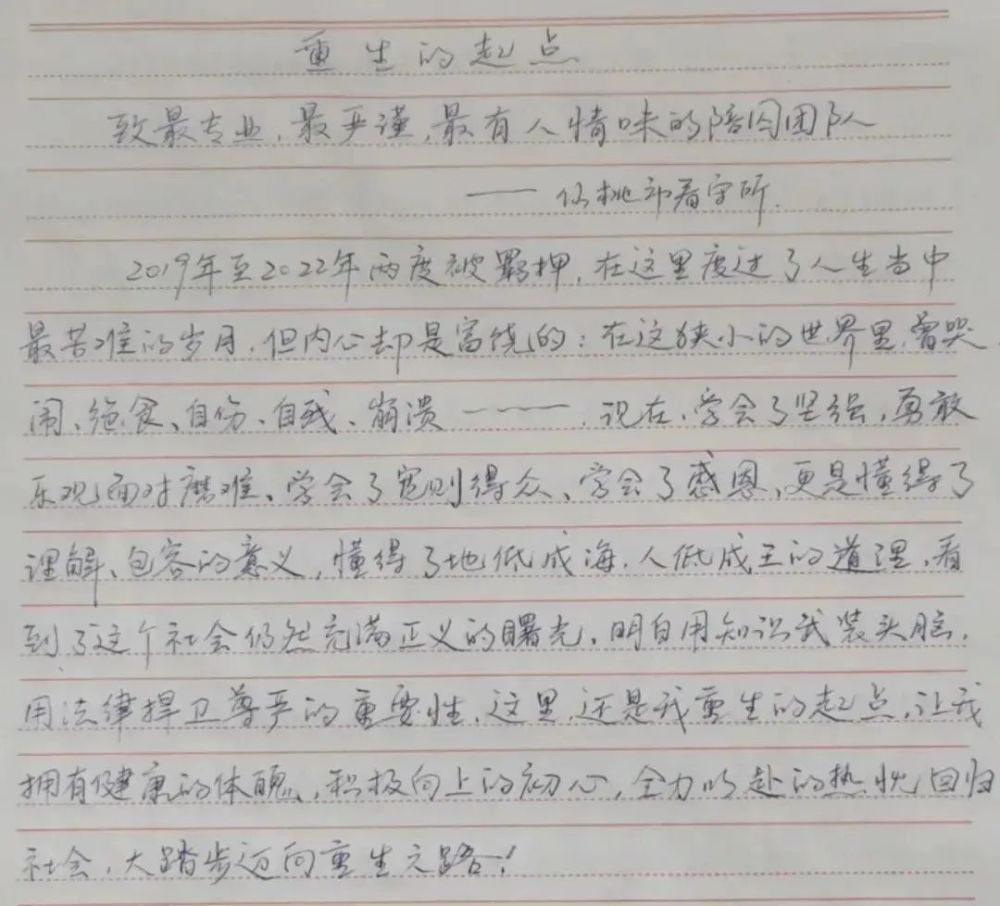 重生的起点
致最专业、最严谨、最有人情味的陪囚团队
—— 仙桃市看守所.
2019年至2022年两度被羁押,在这里度过了人生当中
最苦难的岁月,但内心却是富饶的:在这狭小的世界里,曾哭
闹、绝食、自伤、自残、崩溃————,现在,学会了坚强,勇敢
乐观面对磨难、学会了宽则得众、学会了感恩、更是懂得了
理解、包容的意义,懂得了地低成海,人低成王的道理,看
到了这个社会仍然充满正义的曙光,明白用知识武装头脑,
用法律捍卫尊严的重要性,这里,还是我重生的起点,让我
拥有健康的体魄,积极向上的初心,全力以赴的热忱回归
社会,大踏步迈向重生之路!